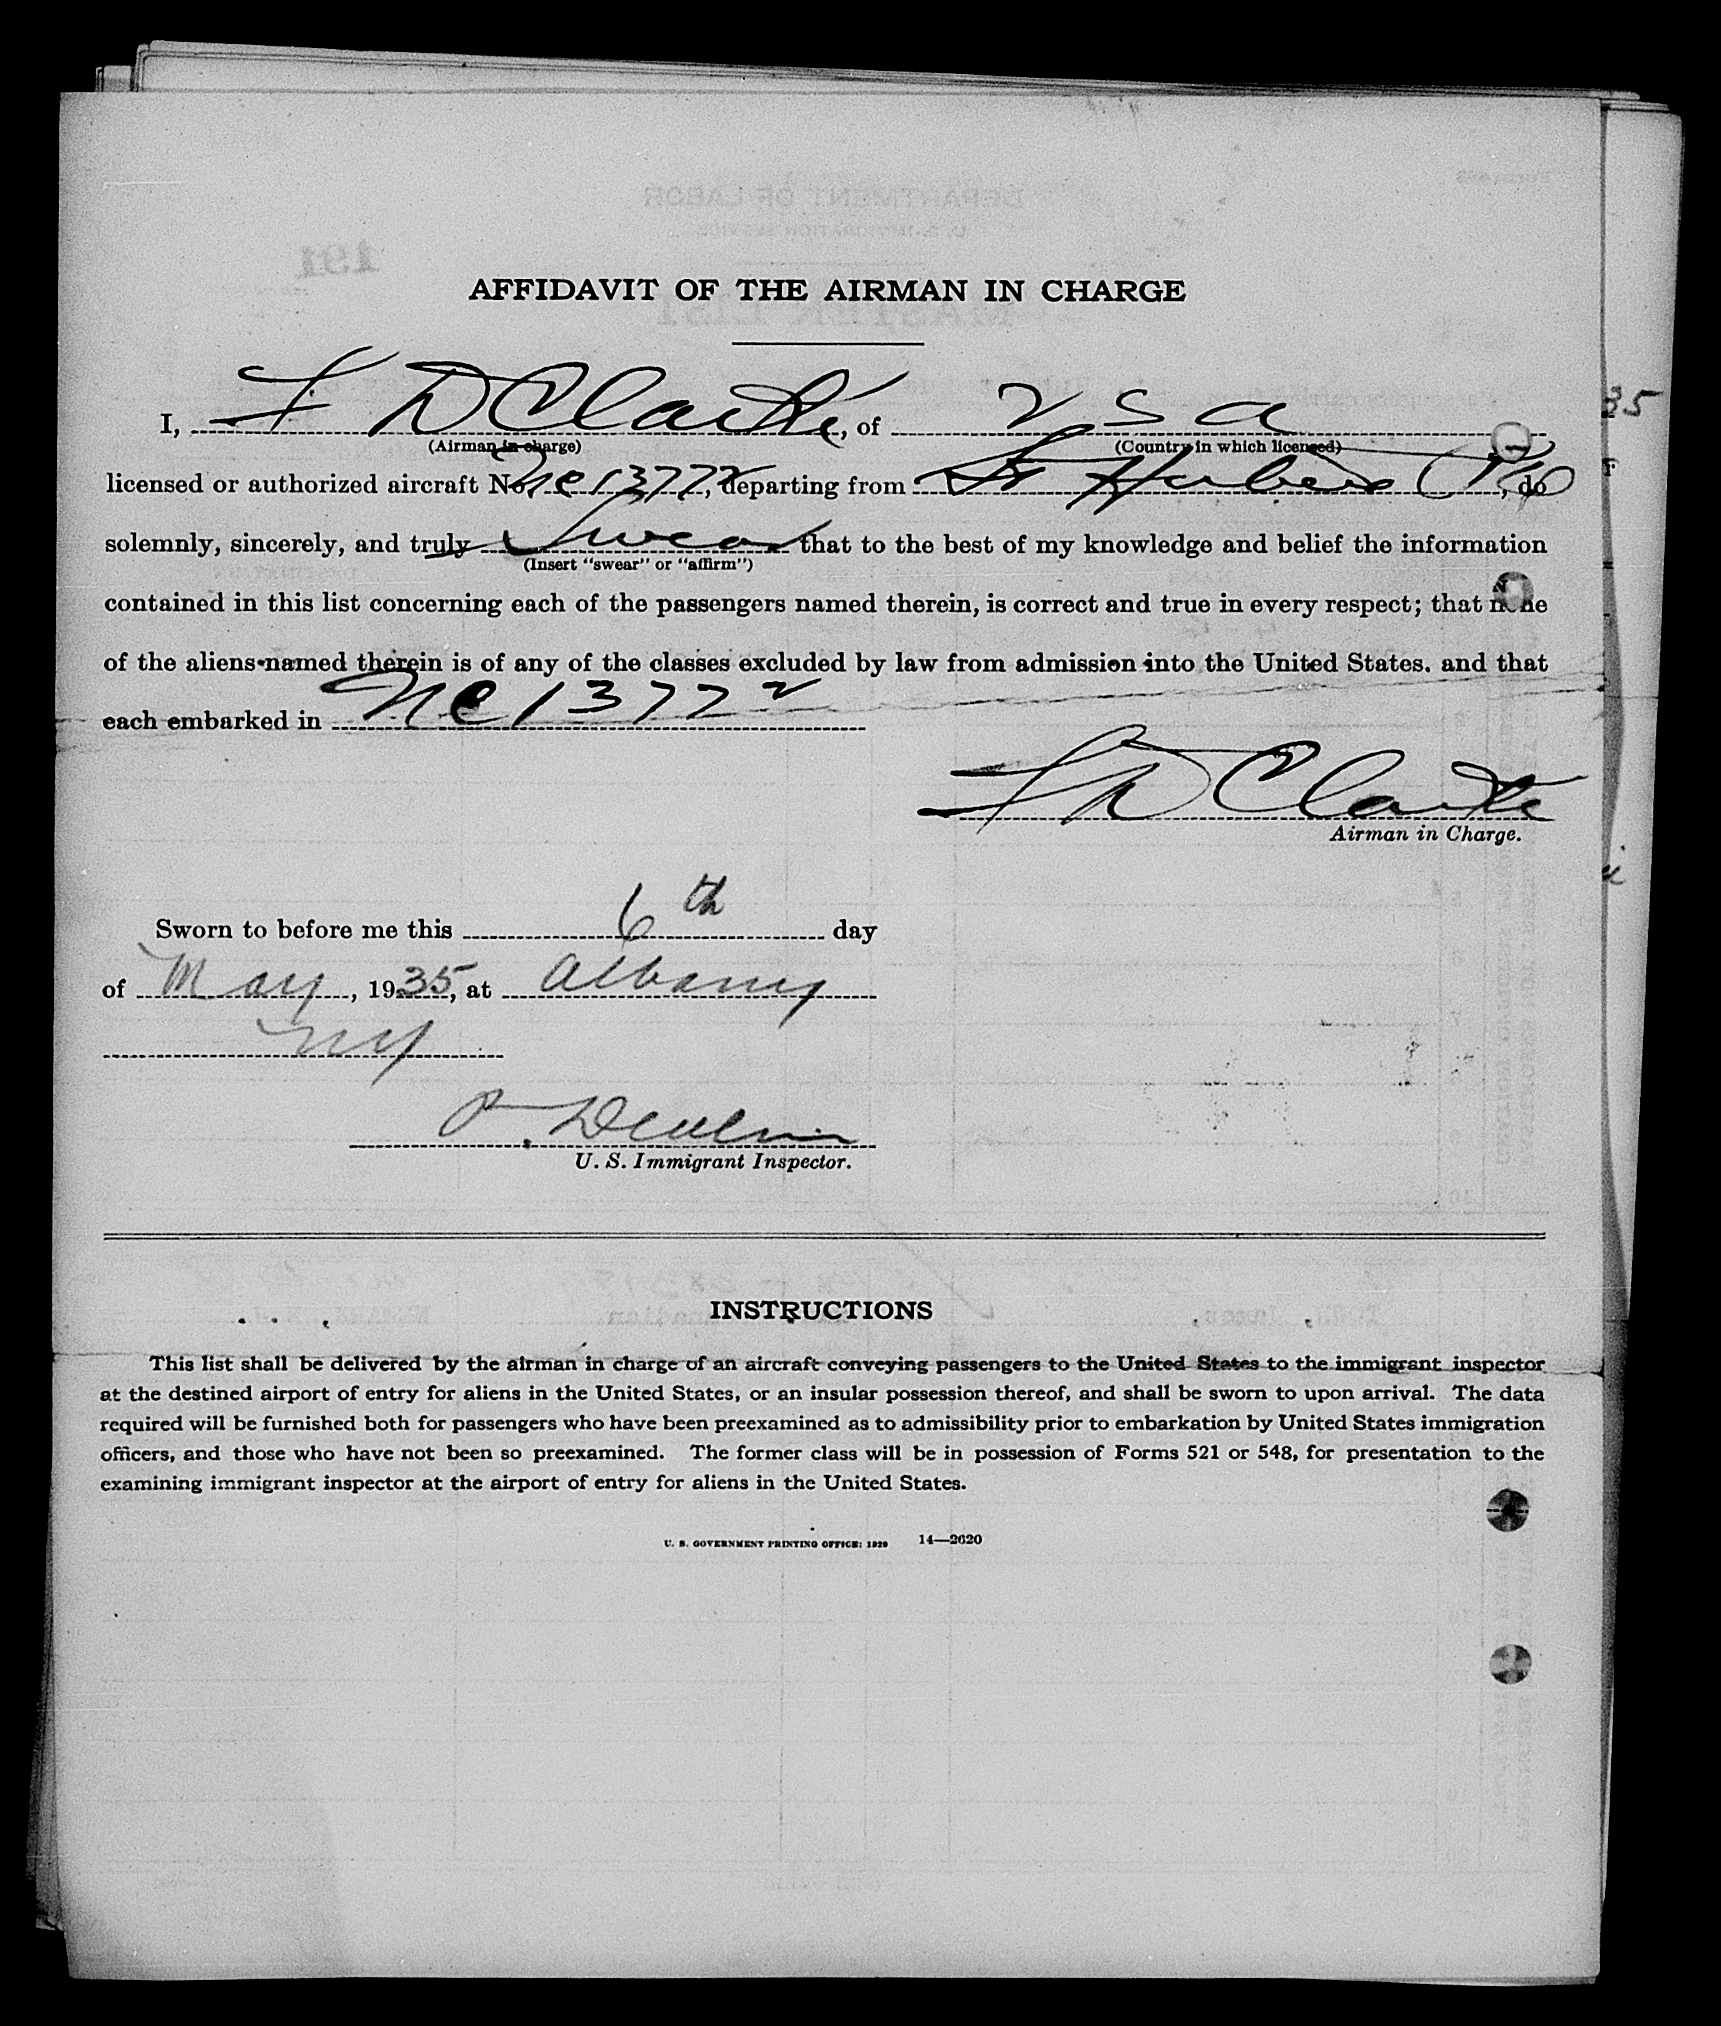 AFFIDAVIT OF THE AIRMAN IN CHARGE
I, F D Clarke, of U S A
(Airman in charge) (Country in which licensed)
licensed or authorized aircraft No. NC13772, departing from St Hubert PQ, do
solemnly, sincerely, and truly swear that to the best of my knowledge and belief the information
(Insert "swear" or "affirm")
contained in this list concerning each of the passengers named therein, is correct and true in every respect; that none
of the aliens named therein is of any of the classes excluded by law from admission into the United States. and that
each embarked in NC13772
F D Clarke
Airman in Charge.
Sworn to before me this 6th day
of May, 1935, at Albany
NY
P.
U. S. Immigrant Inspector.
INSTRUCTIONS
This list shall be delivered by the airman in charge of an aircraft conveying passengers to the United States to the immigrant inspector
at the destined airport of entry for aliens in the United States, or an insular possession thereof, and shall be sworn to upon arrival. The data
required will be furnished both for passengers who have been preexamined as to admissibility prior to embarkation by United States immigration
officers, and those who have not been so preexamined. The former class will be in possession of Forms 521 or 548, for presentation to the
examining immigrant inspector at the airport of entry for aliens in the United States.
U. S. GOVERNMENT PRINTING OFFICE: 1929 14—2620